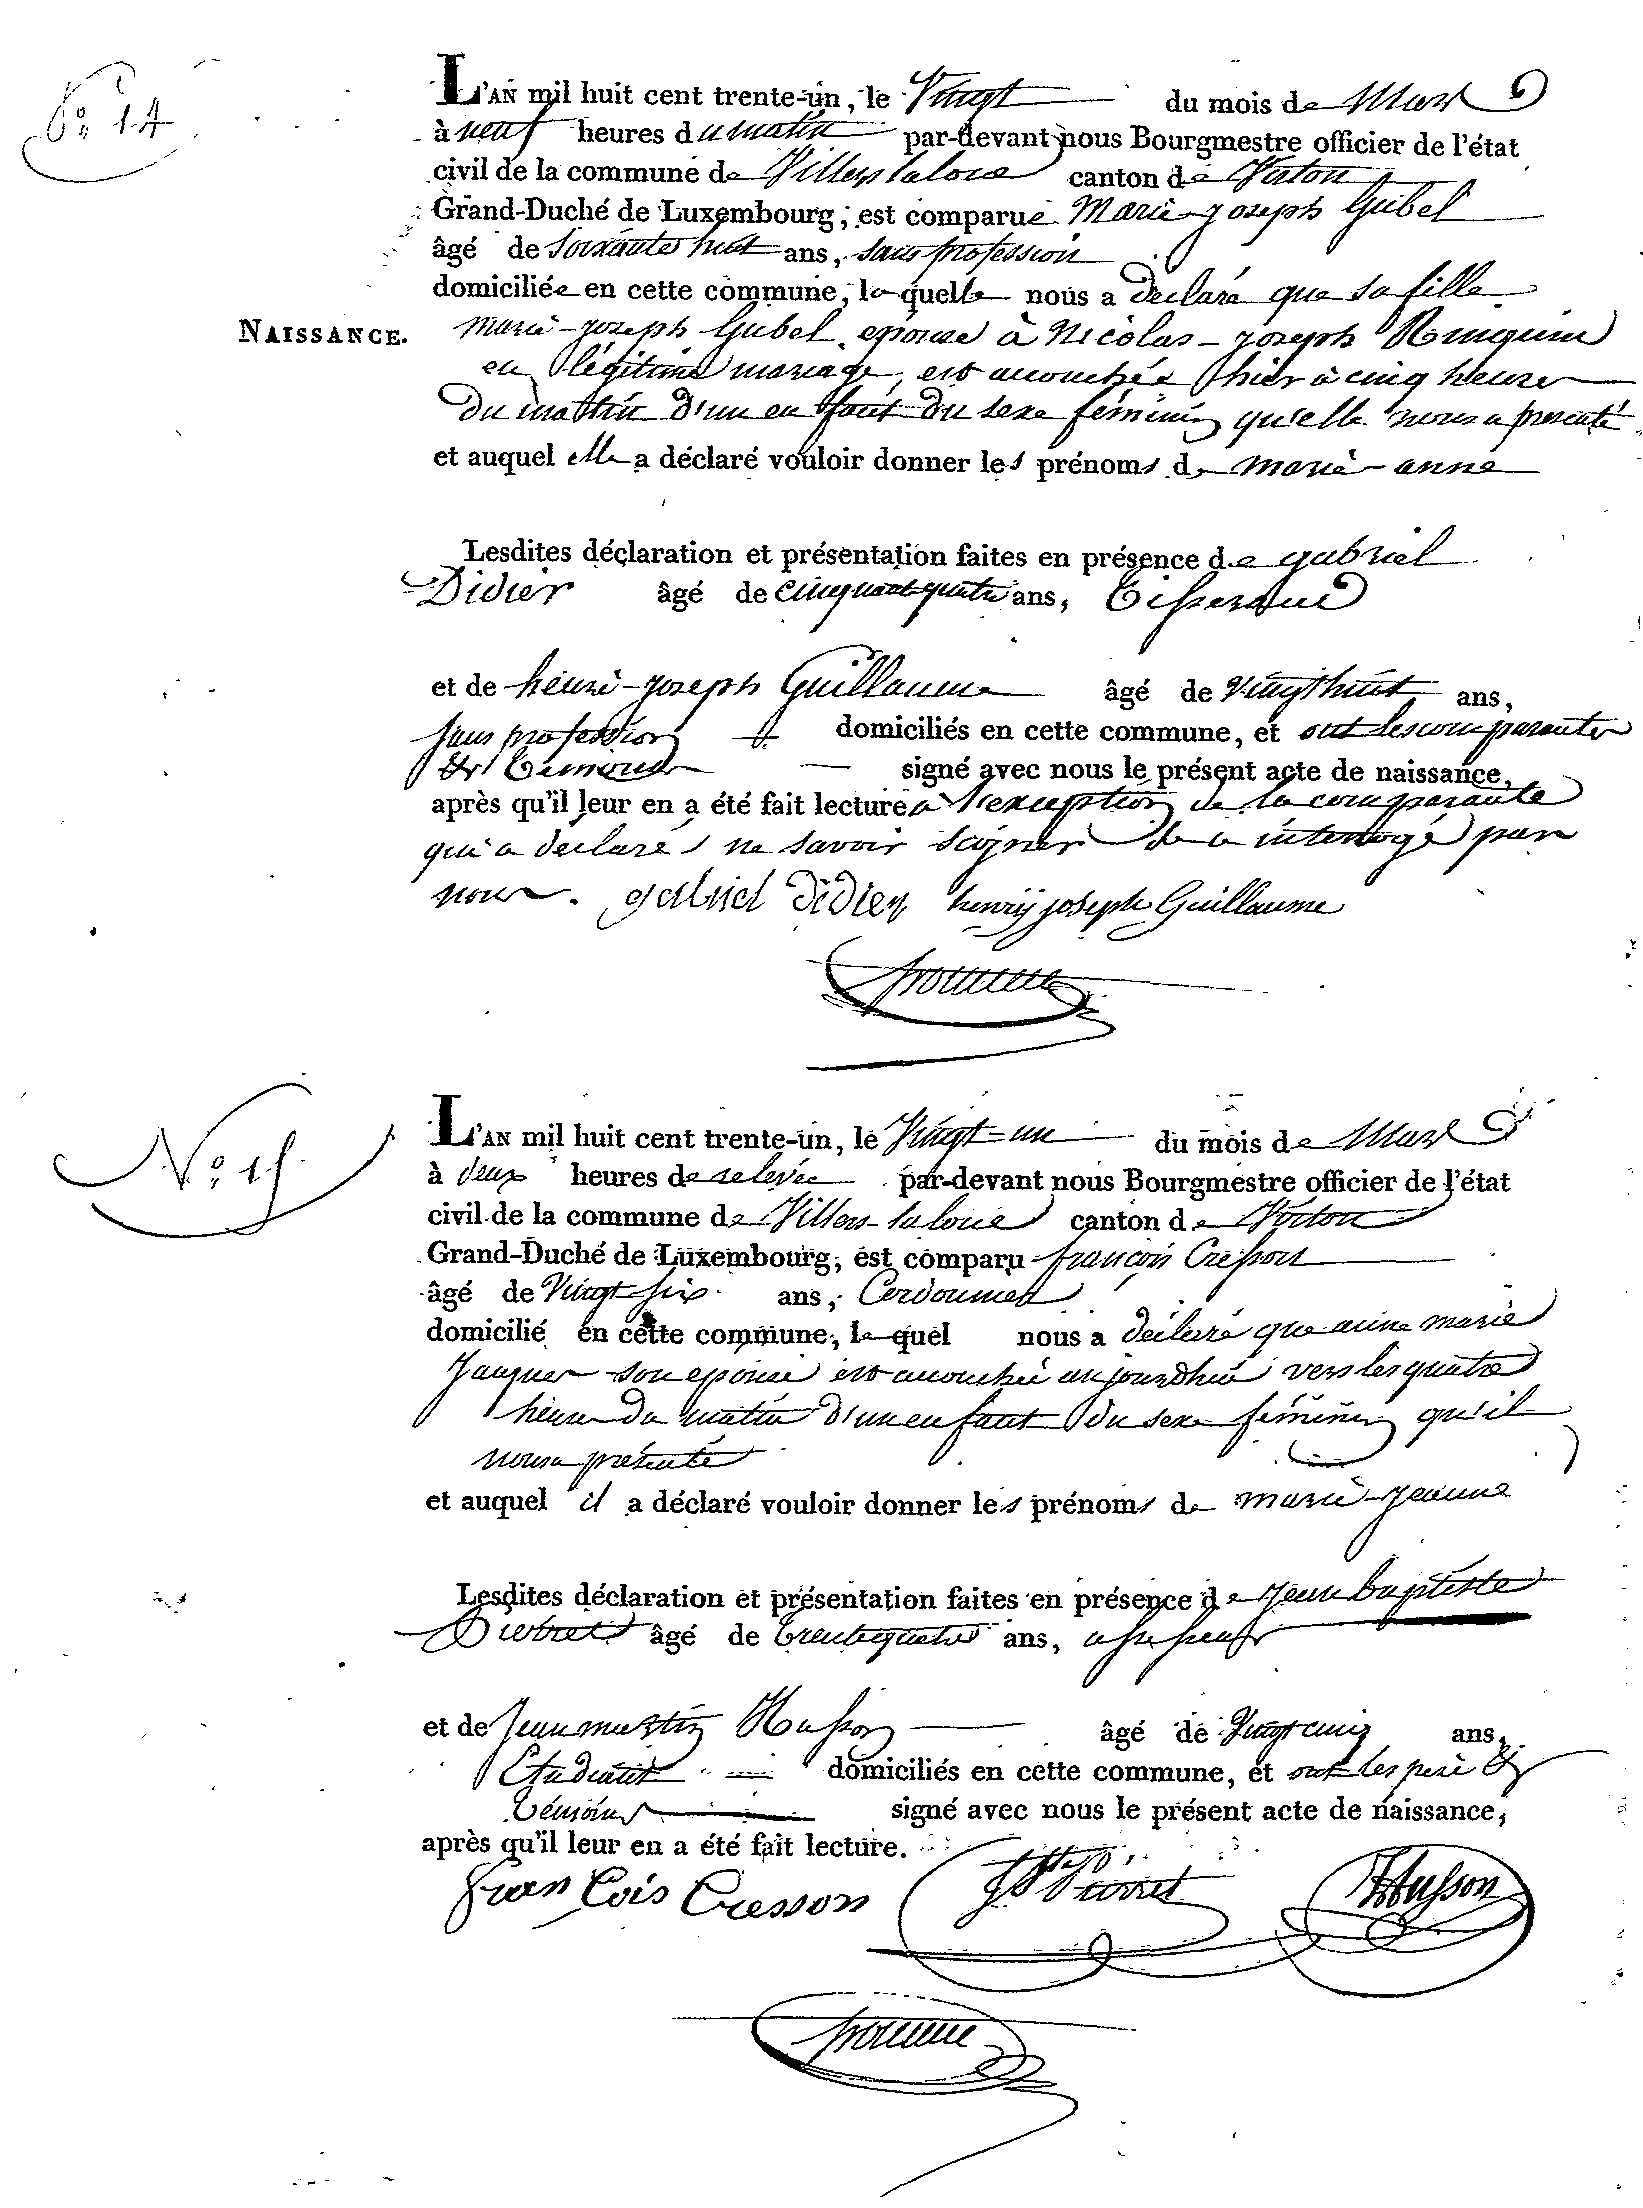 N.° 14
L'AN mil huit cent trente-un, le Vingt du mois de Mars
à neuf heures du matin par-devant nous Bourgmestre officier de l'état
civil de la commune de Villers la loue canton de Virton
Grand-Duché de Luxembourg, est comparue Marie-Joseph Gubel
âgé de soixante huit ans, sans profession
domiciliée en cette commune, laquelle nous a déclaré que sa fille
NAISSANCE.
marie-joseph Gubel, epouse à Nicolas-joseph
en légitime mariage, est accouchée hier à cinq heures
du matin d'un enfant du sexe féminin qu'elle nous a presenté
et auquel elle a déclaré vouloir donner les prénoms de marie-anne
Lesdites déclaration et présentation faites en présence de gabriel
Didier âgé de cinquante quatre ans, Tisserand
et de henri-joseph Guillaume âgé de vingt huit ans,
sans profession domiciliés en cette commune, et ont les comparante
et Témoins signé avec nous le présent acte de naissance,
après qu'il leur en a été fait lecture a l'exception de la comparante
qui a déclaré ne savoir signer de ce interrogé par
nous. gabriel didier henry joseph Guillaume
N.° 15
L'AN mil huit cent trente-un, le Vingt-un du mois de Mars
à deux heures de relevée par-devant nous Bourgmestre officier de l'état
civil de la commune de Villers-la loue canton de Virton
Grand-Duché de Luxembourg, est comparu françois Cresson
âgé de Vingt six ans, Cordonnier
domicilié en cette commune, lequel nous a déclaré que anne marie
Jacques son epouse est accouchée aujourdhui vers les quatre
heures du matin d'un enfant du sexe féminin qu'il
nous a présenté
et auquel il a déclaré vouloir donner les prénoms de marie-jeanne
Lesdites déclaration et présentation faites en présence de jean baptiste
Pierret âgé de trente quatre ans, assesseur
et de Jean martin Husson âgé de Vingt cinq ans,
Etudiant domiciliés en cette commune, et ont les père et
Témoins signé avec nous le présent acte de naissance,
après qu'il leur en a été fait lecture.
Fran Cois Cresson Pierret Husson